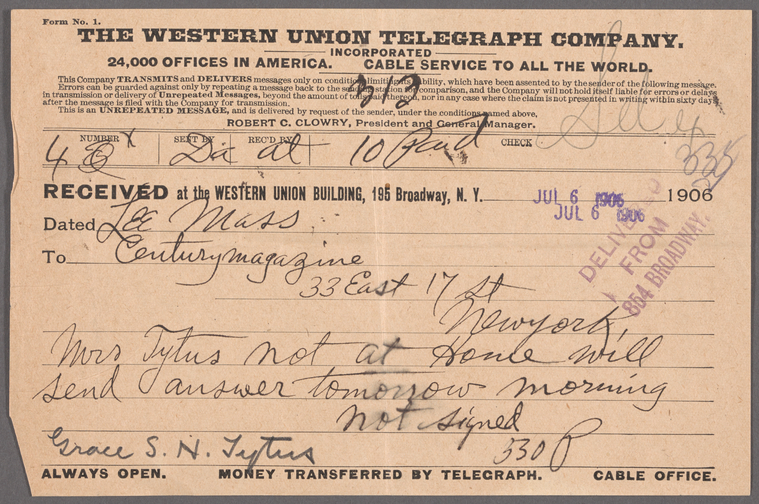 Form No. 1.
THE WESTERN UNION TELEGRAPH COMPANY.
INCORPORATED
24,000 OFFICES IN AMERICA. CABLE SERVICE TO ALL THE WORLD.
This Company TRANSMITS and DELIVERS messages only on conditions limiting its liability, which have been assented to by the sender of the following message.
Errors can be guarded against only by repeating a message back to the sending station for comparison, and the Company will not hold itself liable for errors or delays
in transmission or delivery of Unrepeated Messages, beyond the amount of tolls paid thereon, nor in any case where the claim is not presented in writing within sixty days
after the message is filed with the Company for transmission.
This is an UNREPEATED MESSAGE, and is delivered by request of the sender, under the conditions named above.
ROBERT C. CLOWRY, President and General Manager.
313
NUMBER SENT BY REC'D BY CHECK
10 Paid
335
RECEIVED at the WESTERN UNION BUILDING, 195 Broadway, N. Y. JUL 6 1906 1906
JUL 6 1906
Dated Lee Mass
To Century magazine
33 East 17 St
New york,
DELIVERED
FROM
854 BROADWAY.
Mrs Tytus not at Home will
send answer tomorrow morning
not signed
530 P
Grace S. H. Tytus
ALWAYS OPEN. MONEY TRANSFERRED BY TELEGRAPH. CABLE OFFICE.